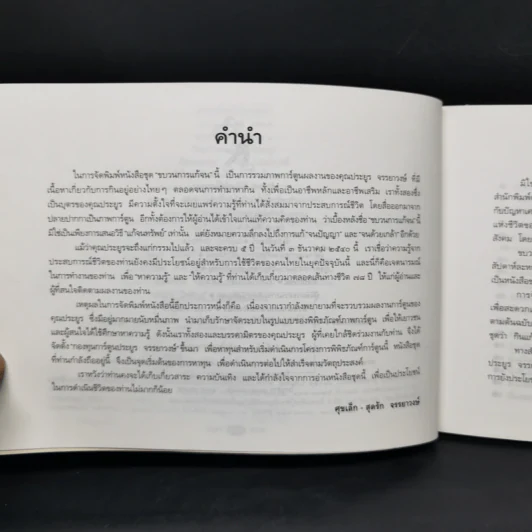 คำนำ
ในการจัดพิมพ์หนังสือชุด "ขบวนการแก้จน" นี้ เป็นการรวมภาพการ์ตูนผลงานของคุณประยูร จรรยาวงษ์ ที่มี
เนื้อหาเกี่ยวกับการกินอยู่อย่างไทยๆ ตลอดจนการทำมาหากิน ทั้งเพื่อเป็นอาชีพหลักและอาชีพเสริม เราทั้งสองซึ่ง
เป็นบุตรของคุณประยูร มีความตั้งใจที่จะเผยแพร่ความรู้ที่ท่านได้สั่งสมมาจากประสบการณ์ชีวิต โดยสื่อออกมาจาก
ปลายปากกาเป็นภาพการ์ตูน อีกทั้งต้องการให้ผู้อ่านได้เข้าใจแก่นแท้ความคิดของท่าน ว่าเบื้องหลังชื่อ "ขบวนการแก้จน" นี้
มิใช่เป็นเพียงการเสนอวิธี "แก้จนทรัพย์" เท่านั้น แต่ยังหมายความลึกลงไปถึงการแก้ "จนปัญญา" และ "จนด้วยเกล้า" อีกด้วย
แม้ว่าคุณประยูรจะถึงแก่กรรมไปแล้ว และจะครบ ๕ ปี ในวันที่ ๓ ธันวาคม ๒๕๔๐ นี้ เราเชื่อว่าความรู้จาก
ประสบการณ์ชีวิตของท่านยังคงมีประโยชน์อยู่สำหรับการใช้ชีวิตของคนไทยในยุคปัจจุบันนี้ และนี่ก็คือเจตนารมณ์
ในการทำงานของท่าน เพื่อ "หาความรู้" และ "ให้ความรู้" ที่ท่านได้เก็บเกี่ยวมาตลอดเส้นทางชีวิต ๗๘ ปี ให้แก่ผู้อ่านและ
ผู้ที่สนใจติดตามผลงานของท่าน
เหตุผลในการจัดพิมพ์หนังสือนี้อีกประการหนึ่งก็คือ เนื่องจากเรากำลังพยายามที่จะรวบรวมผลงานการ์ตูนของ
คุณประยูร ซึ่งมีอยู่มากมายนับหมื่นภาพ นำมาเก็บรักษาจัดระบบในรูปแบบของพิพิธภัณฑ์ภาพการ์ตูน เพื่อให้เยาวชน
และผู้สนใจได้ใช้ศึกษาหาความรู้ ดังนั้นเราทั้งสองและบรรดามิตรของคุณประยูร ผู้ที่เคยใกล้ชิดร่วมงานกับท่าน จึงได้
จัดตั้ง "กองทุนการ์ตูนประยูร จรรยาวงษ์" ขึ้นมา เพื่อหาทุนสำหรับเริ่มดำเนินการโครงการพิพิธภัณฑ์การ์ตูนนี้ หนังสือชุด
ที่ท่านกำลังถืออยู่นี้ จึงเป็นจุดเริ่มต้นของการหาทุน เพื่อดำเนินการต่อไปให้สำเร็จตามวัตถุประสงค์
เราหวังว่าท่านคงจะได้เก็บเกี่ยวสาระ ความบันเทิง และได้กำลังใจจากการอ่านหนังสือชุดนี้ เพื่อเป็นประโยชน์
ในการดำเนินชีวิตของท่านไม่มากก็น้อย
ศุขเล็ก - สุดรัก จรรยาวงษ์
มีไร
สำนักพิมพ์
กับปัญหาแ
แห่งชีวิตขอ
สังคม โดย
ขบว
สัปดาห์ละห
เป็นหนังสือ
เพื่อสะดวก
ตามต้นฉบับ
ชุดว่า กินแก้
ทางสำ
ประยูร จรร
การยังประโย